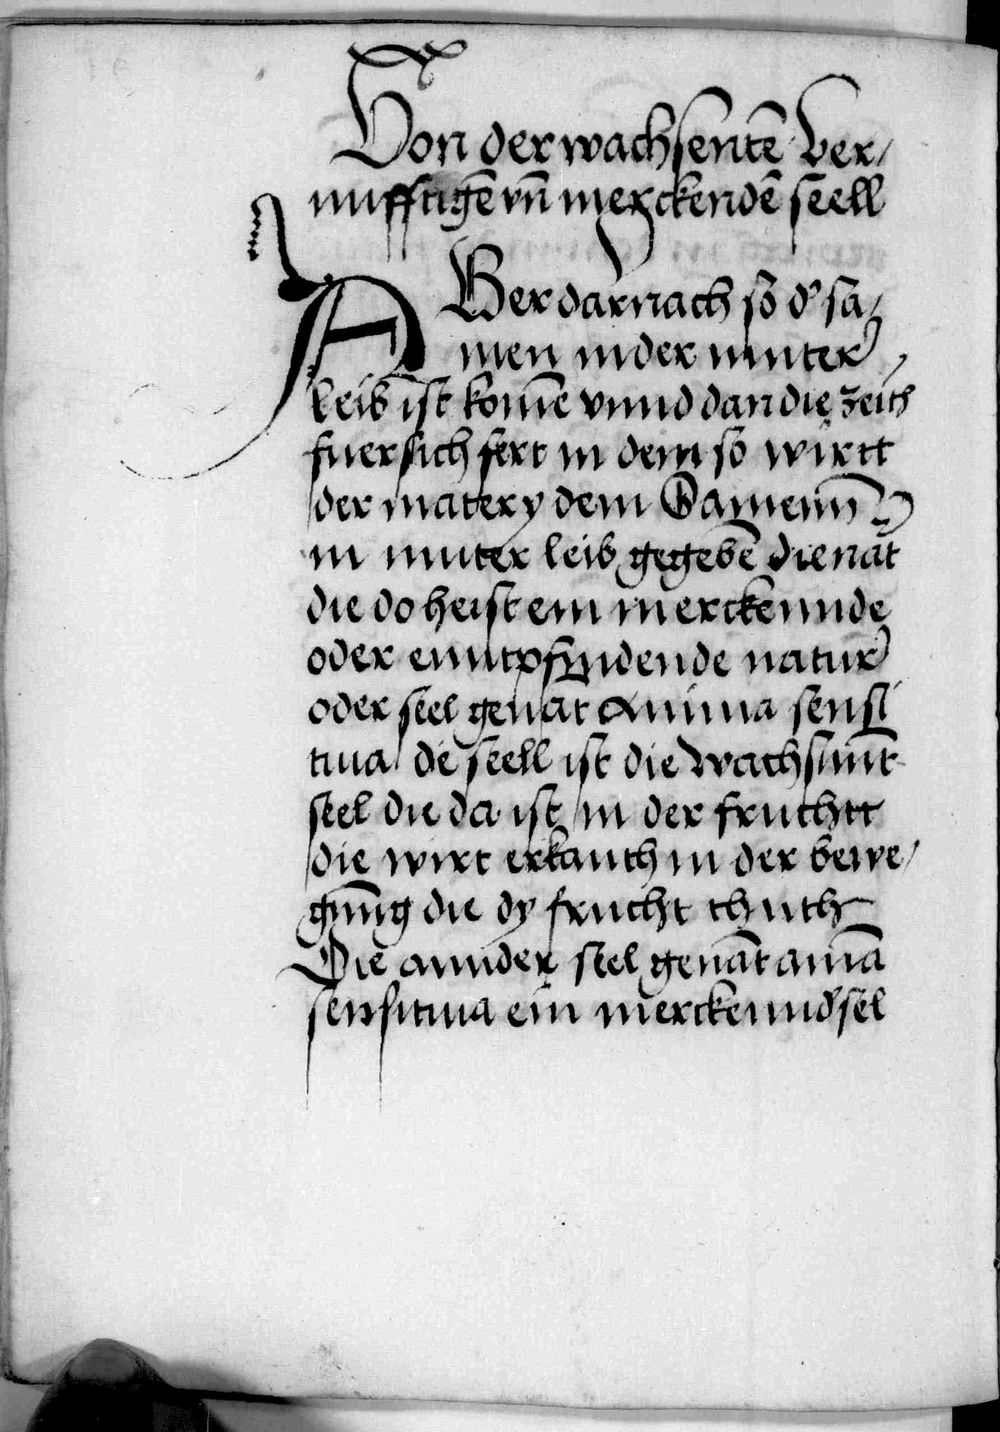 Von der wachsentē ver/
nufftigē vn̄ merckendē seell
ABer darnach so d' sa/
men in der muter
leib ist komē vnnd dan die zeith
fuer sich fert in dem so wirtt
der matery dem Samenn
in muter leib gegebē die nat
die do heist ein merckennde
oder enntpfyndende natur
oder seel genāt Anima sensi
tiua dē seell ist die wachsunt
seel die da ist in der fruchtt
die wirt erkanth in der bewe/
gūng die dy frucht thuth
Die annder seel genāt aniā
sensitiua ein merckennd' sel